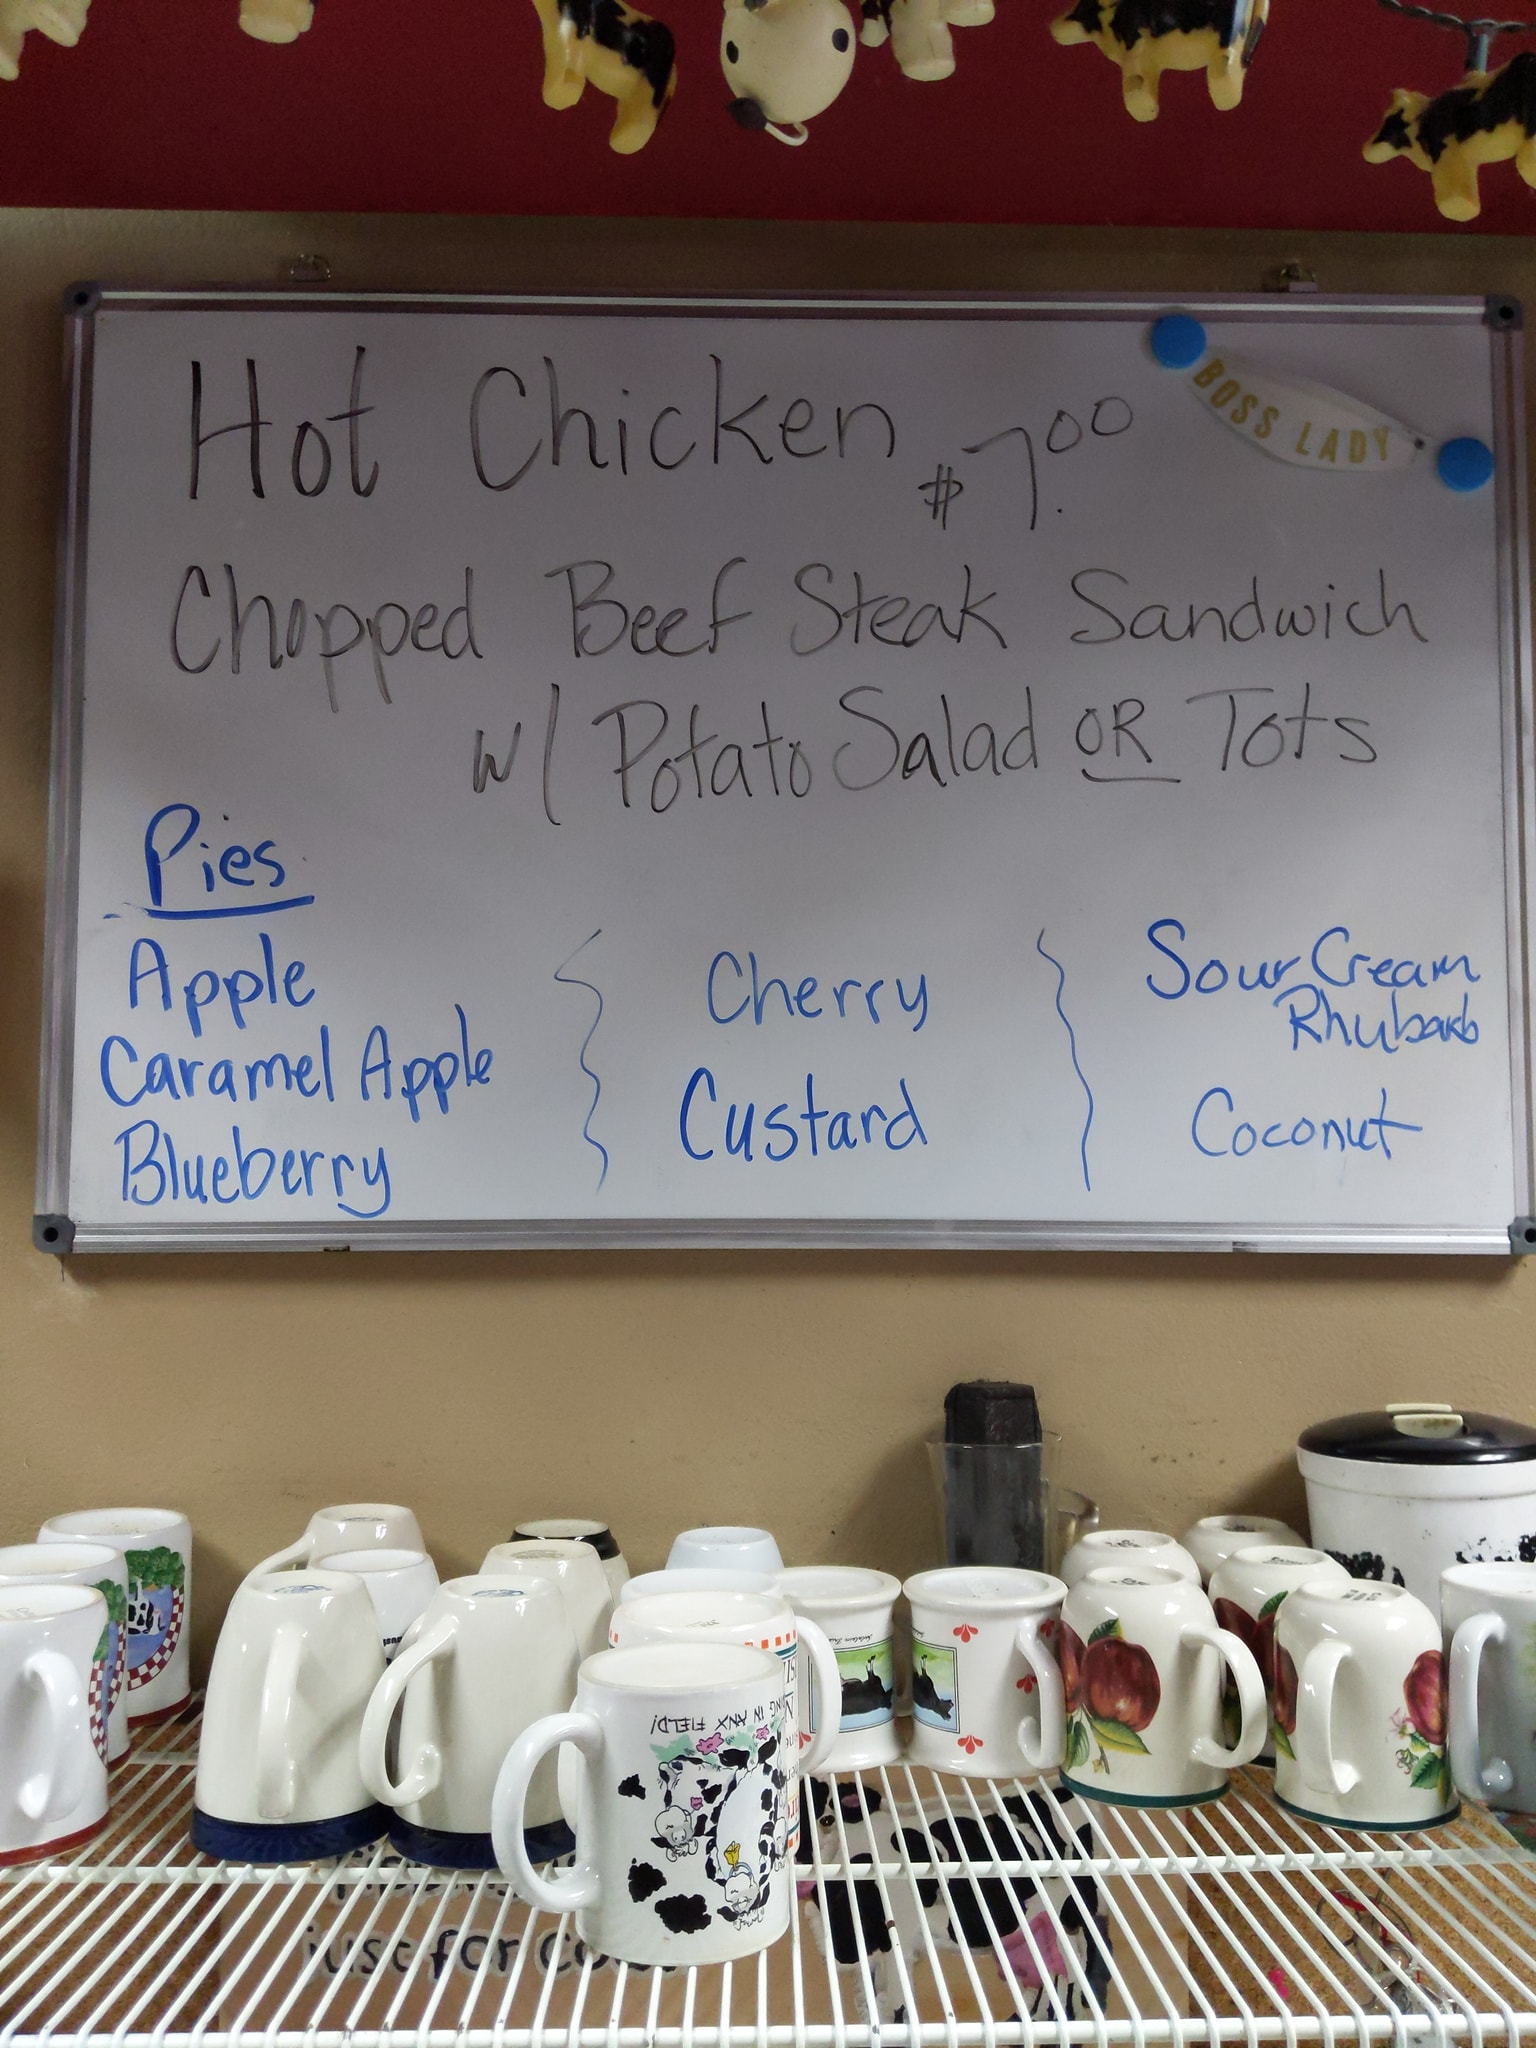 BOSS LADY
Hot Chicken $7.00
Chopped Beef Steak Sandwich
w/ Potato Salad OR Tots
Pies
Apple
Caramel Apple
Blueberry
Cherry
Custard
Sour Cream
Rhubarb
Coconut
IN ANX FIELD!
just for